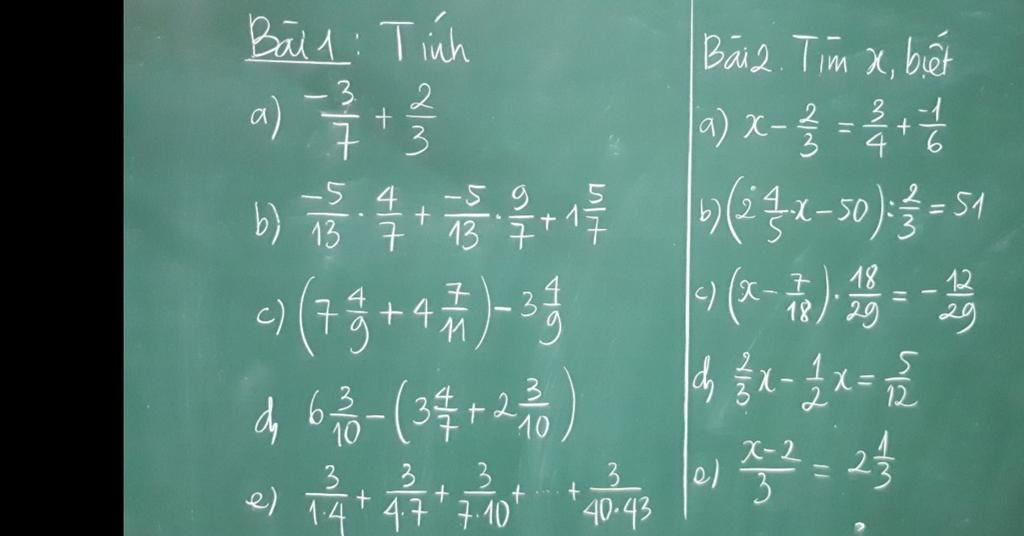 Bài 1: Tính
a) -3/7 + 2/3
b) -5/13 · 4/7 + -5/13 · 9/7 + 1 5/7
c) (7 4/9 + 4 7/11) - 3 4/9
d) 6 3/10 - (3 4/7 + 2 3/10)
e) 3/1·4 + 3/4·7 + 3/7·10 + ···· + 3/40·43
Bài 2. Tìm x, biết
a) x - 2/3 = 3/4 + -1/6
b) (2 4/5·x - 50) : 2/3 = 51
c) (x - 7/18) · 18/29 = - 12/29
d) 2/3 x - 1/2 x = 5/12
e) x-2/3 = 2 1/3